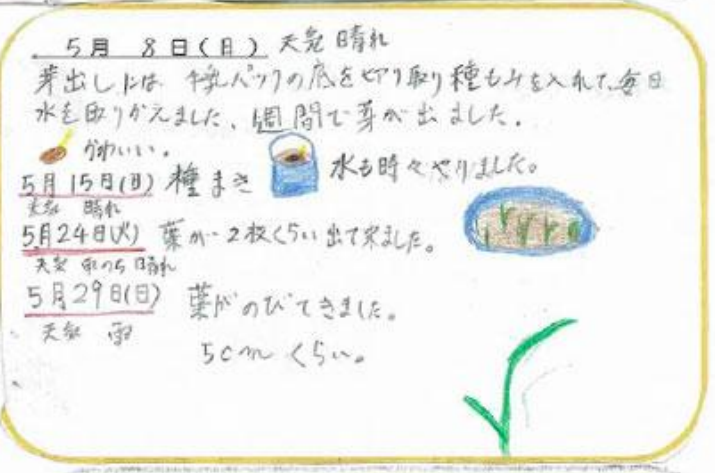 5月 8日(日) 天気 晴れ
芽出しには 牛乳パックの底を切り取り種もみを入れて、毎日
水を取りかえました、1週間で芽が出ました。
かわいい。
5月15日(日) 種まき 水も時々やりました。
天気 晴れ
5月24日(火) 葉が2枚くらい出て来ました。
天気 雨のち 晴れ
5月29日(日) 葉がのびてきました。
天気 雨
5cmくらい。